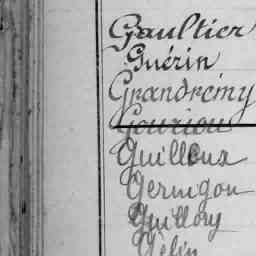 Gaultier
Guérin
Grandrémy
Gouriou
Guilloux
Germgon
Guillou
Gélin